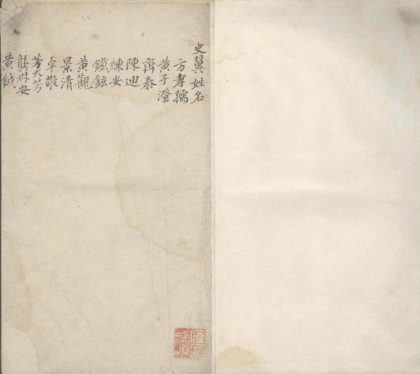 史翼姓名
方孝孺
黄子澄
齊泰
陳迪
練安
鐵鉉
黄觀
景清
卓敬
茅大芳
龔泰安
黄鉞